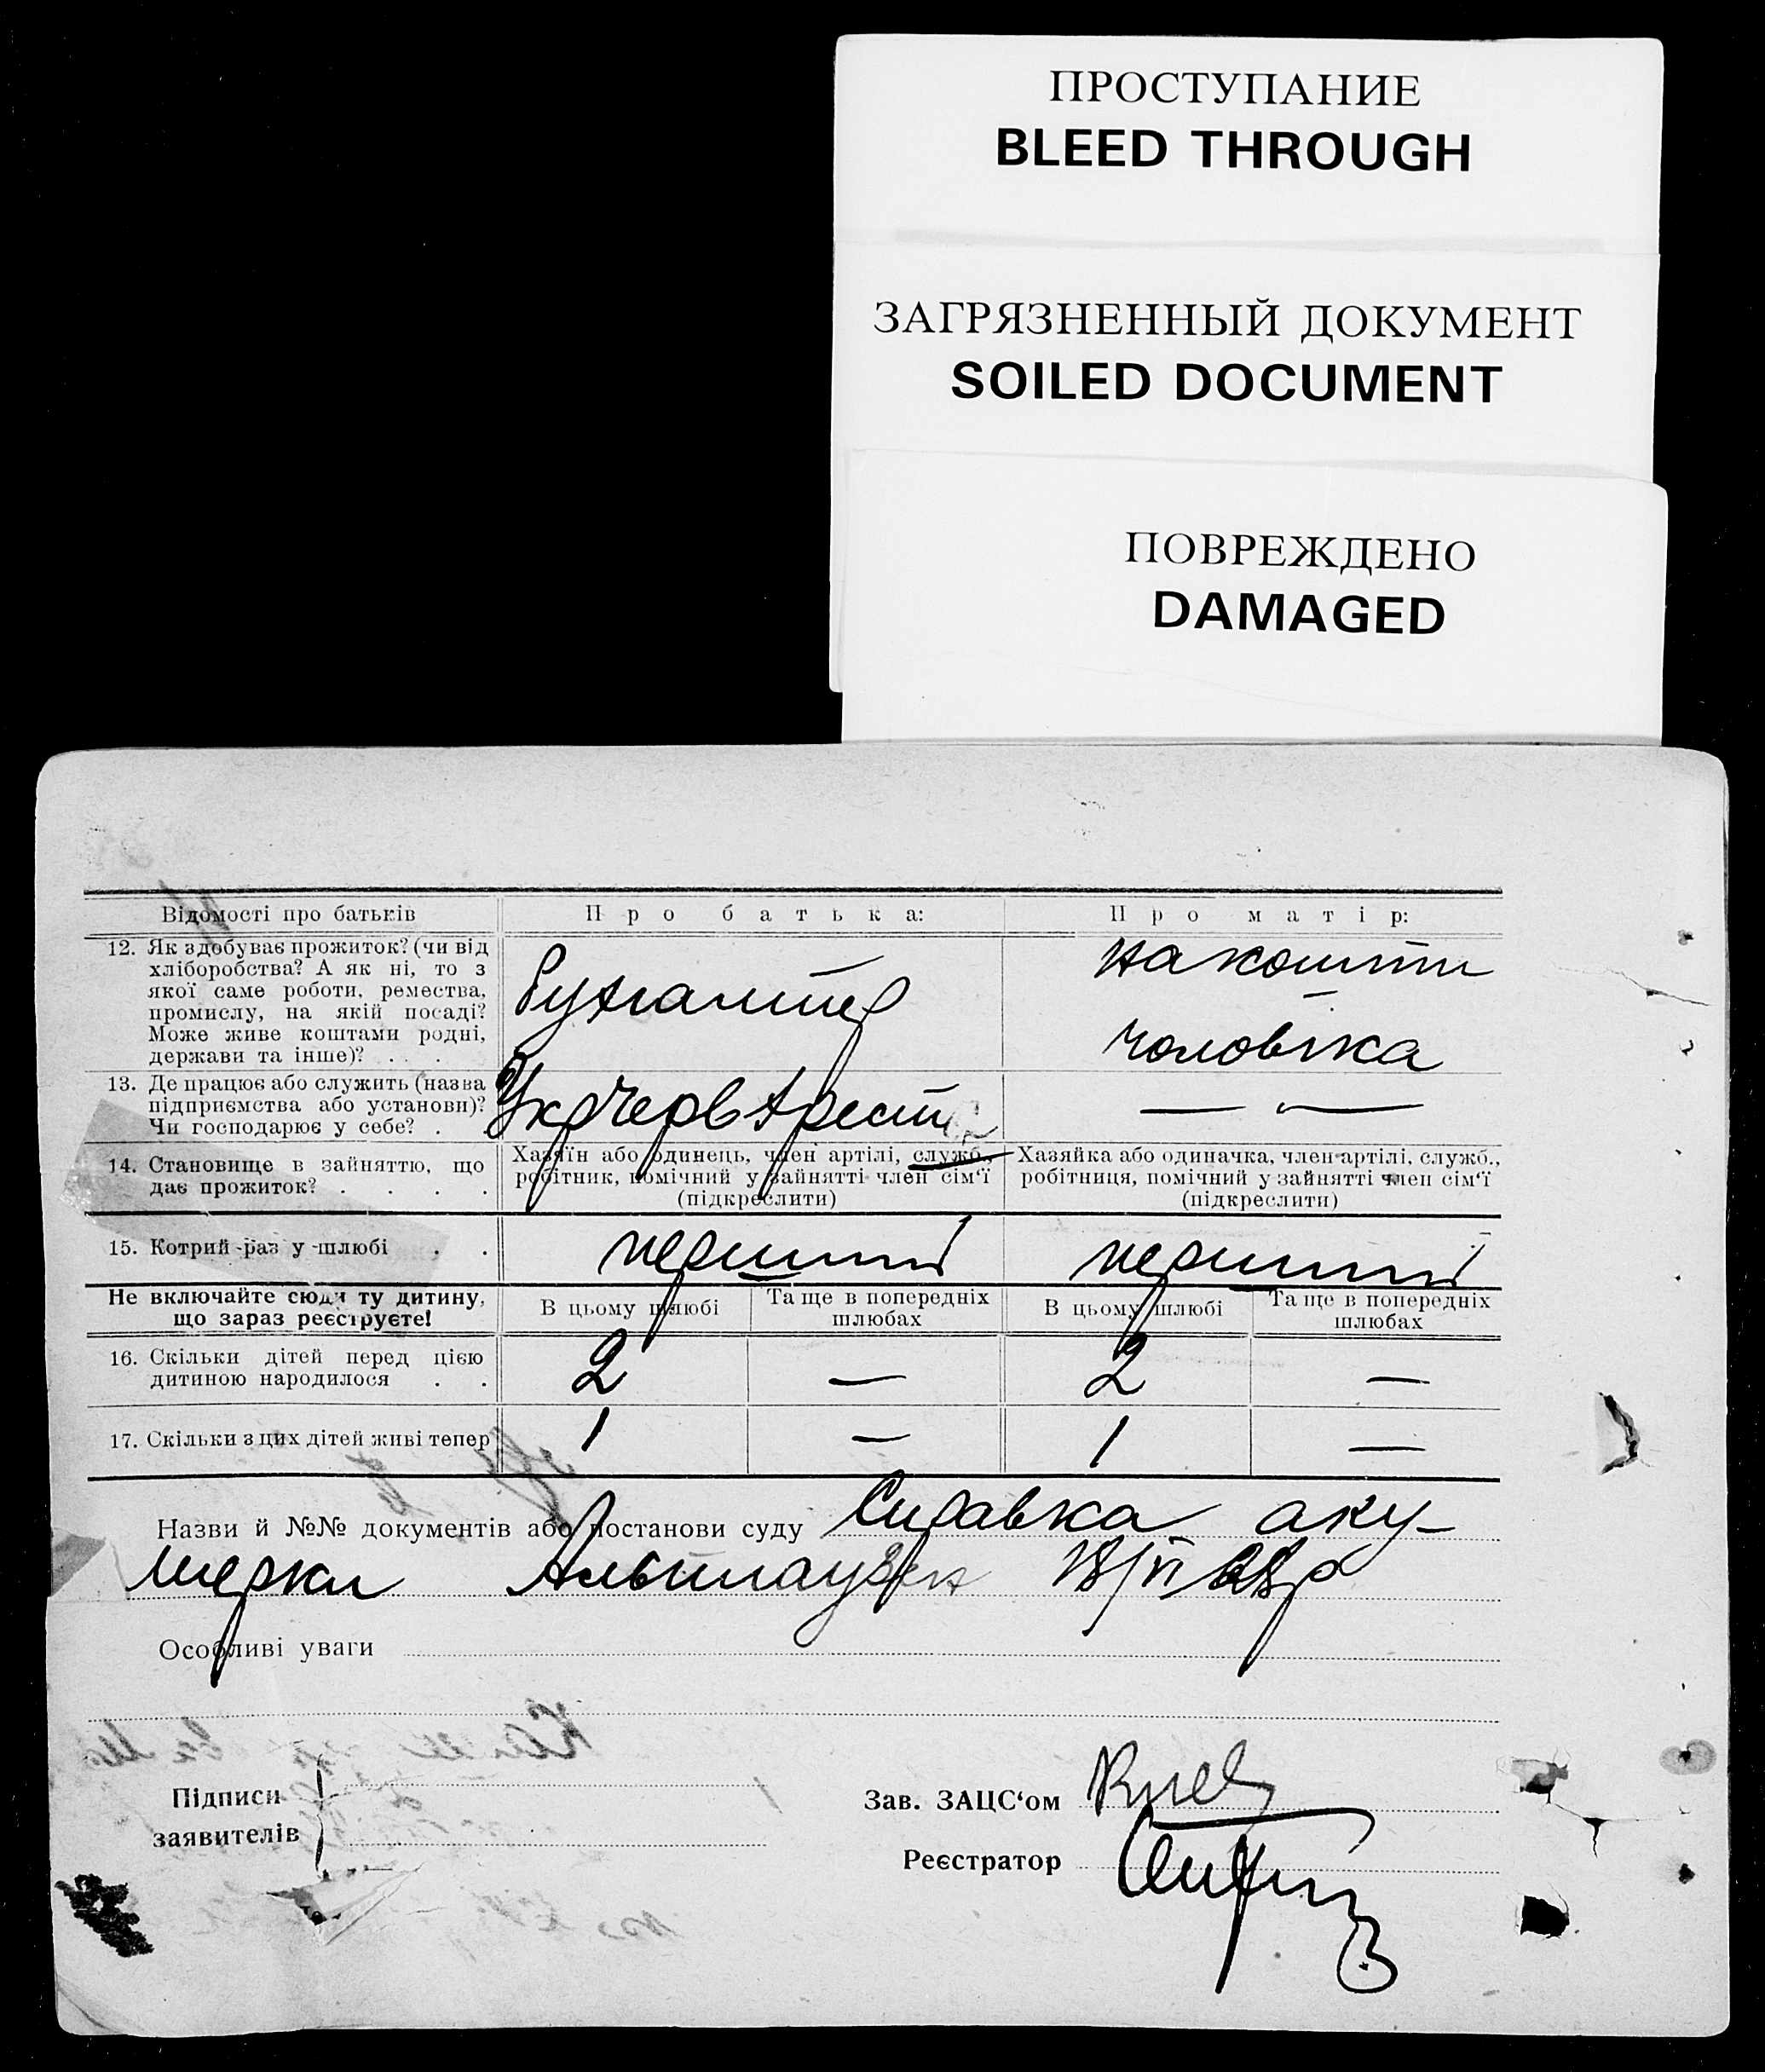 ПРОСТУПАНИЕ
BLEED THROUGH
ЗАГРЯЗНЕННЫЙ ДОКУМЕНТ
SOILED DOCUMENT
ПОВРЕЖДЕНО
DAMAGED
Відомості про батьків
Про батька:
Про матір:
12. Як здобуває прожиток? (чи від
хліборобства? А як ні, то з
якої саме роботи, ремества,
промислу, на якій посаді?
Може живе коштами родні,
держави та інше)? . . .
Бухгалтер
на кошти
чоловіка
13. Де працює або служить (назва
підприємства або установи)?
Чи господарює у себе? . .
Укрчервтрест
— —
14. Становище в зайняттю, що
дає прожиток? . . . .
Хазяїн або одинець, член артілі, служб.,
робітник, помічний у зайнятті член сім'ї
(підкреслити)
Хазяйка або одиначка, член артілі, служб.,
робітниця, помічний у зайнятті член сім'ї
(підкреслити)
15. Котрий раз у шлюбі . .
перший
перший
Не включайте сюди ту дитину,
що зараз реєструєте!
В цьому шлюбі
Та ще в попередніх
шлюбах
В цьому шлюбі
Та ще в попередніх
шлюбах
16. Скільки дітей перед цією
дитиною народилося . .
2 — 2 —
17. Скільки з цих дітей живі тепер
1 — 1 —
Назви й №№ документів або постанови суду Справка аку-
шерки Альтгаузен 18/VI 28р
Особливі уваги
Підписи
заявителів
Зав. ЗАЦС'ом
Реєстратор